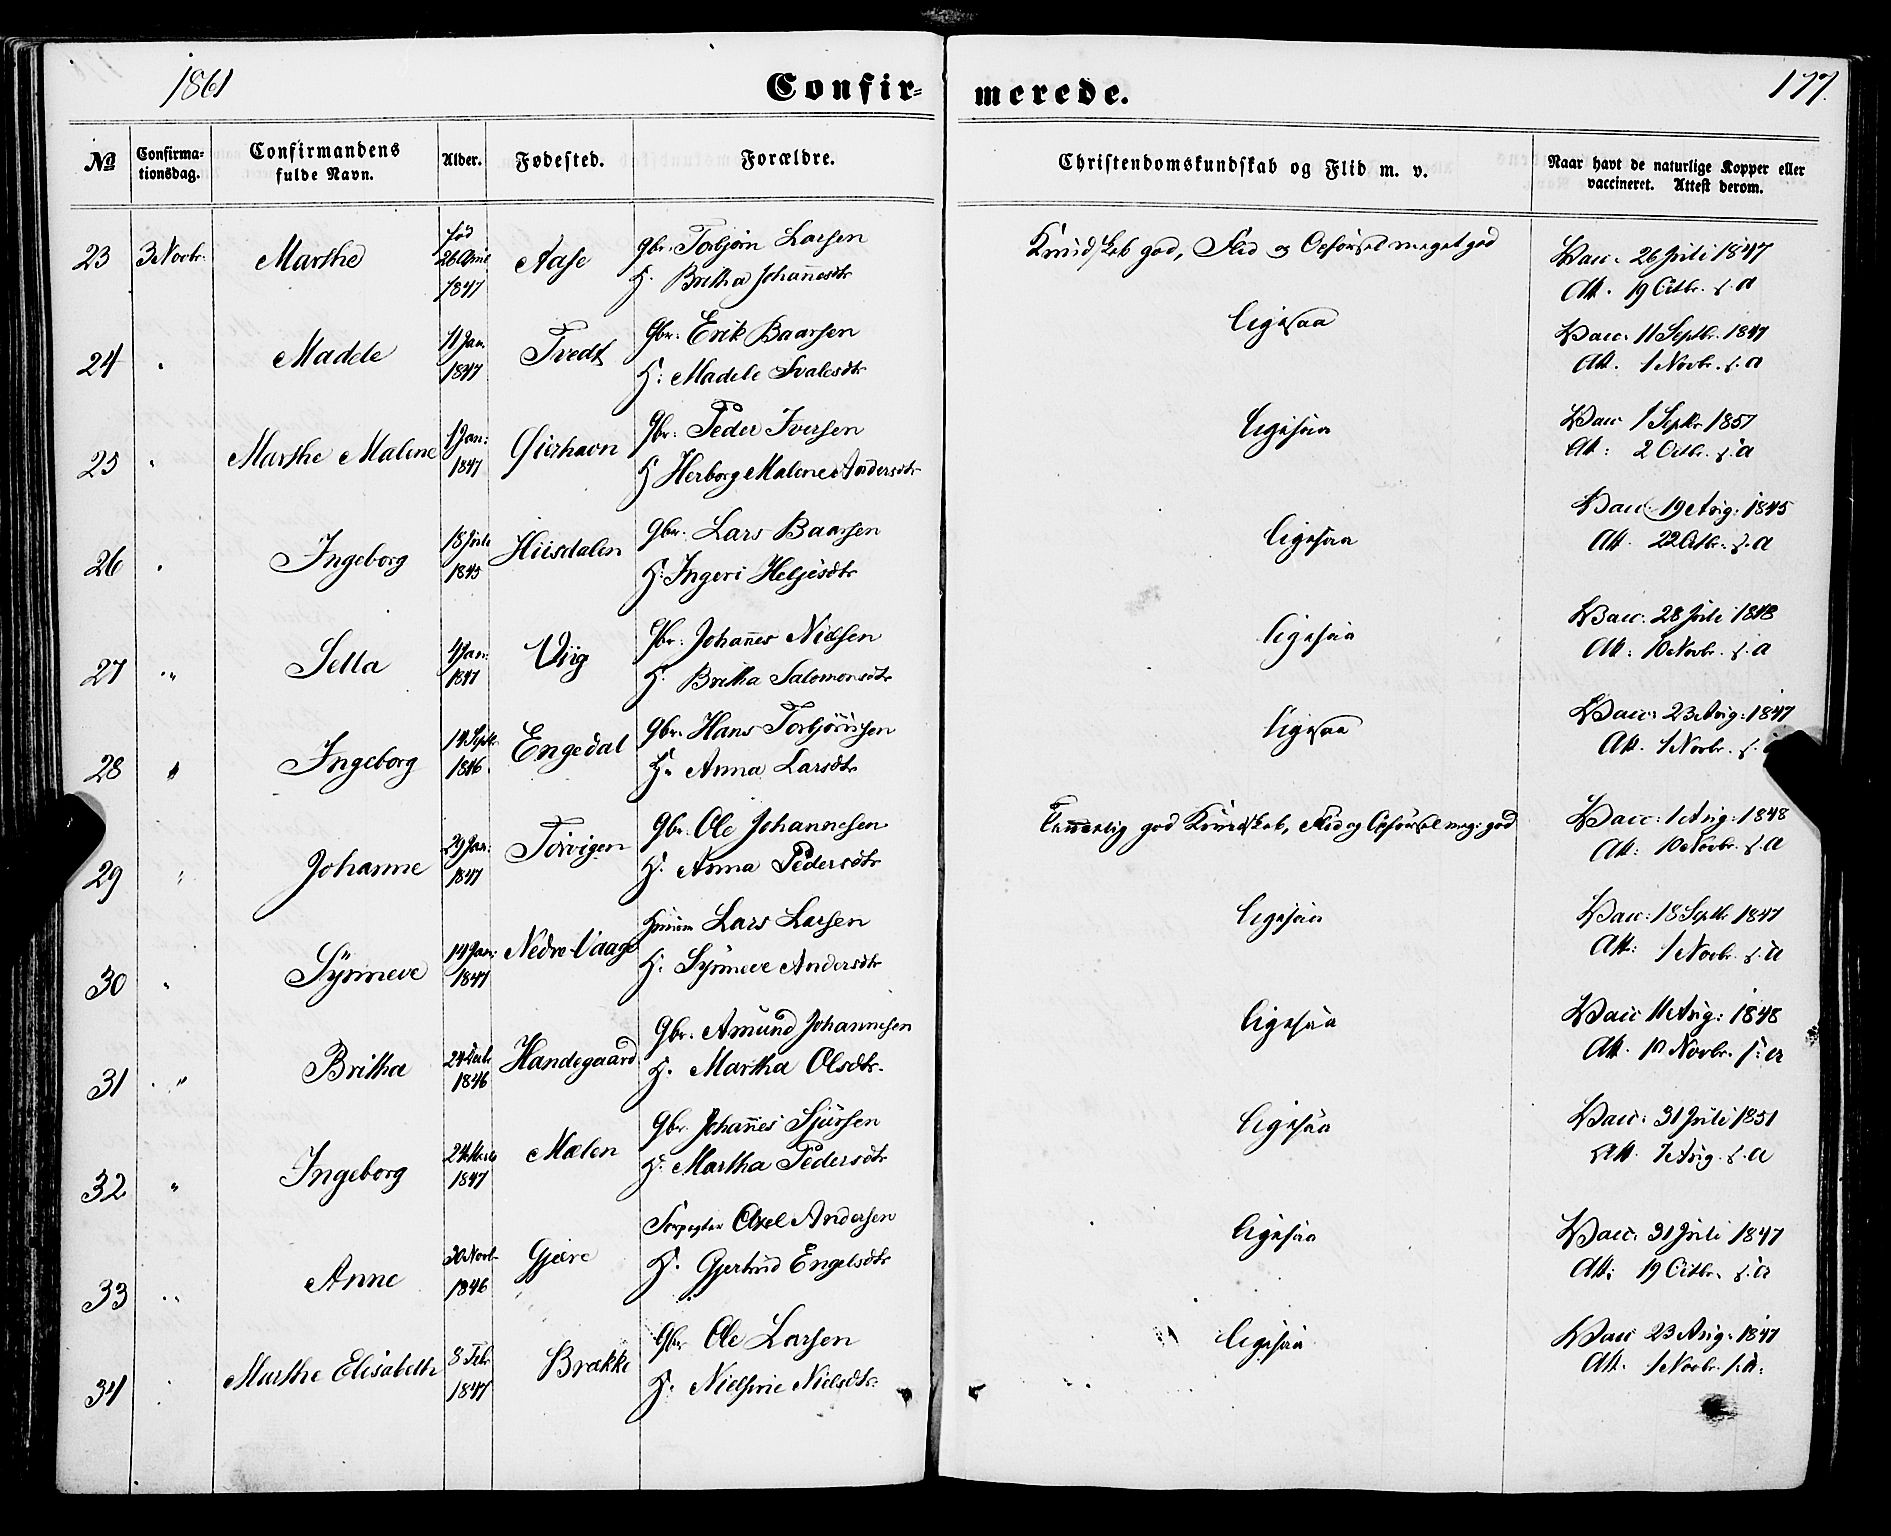 1861
Confir-
merede.
177.
No
Confirma-
tionsdag.
Confirmandens
fulde Navn.
Alder.
Fødested.
Forældre.
Christendomskundskab og Flid m. v.
Naar havt de naturlige Kopper eller
vaccineret. Attest derom.
23 3 Novbr. Marthe fød 26 April 1847 Aase
Gbr. Torbjørn Larsen
H. Britha Johannesdtr
Kundskab god, Flid og Opførsel meget god
Vacc. 26 Juli 1847
Att. 19 Octbr. s. a
24 " Madele 11 Jan. 1847 Tvedt
Gbr. Erik Baarsen
H. Madele Ivalesdtr
ligesaa
Vacc. 11 Septbr. 1847
Att. 1 Novbr. s. a
25 " Marthe Malene 1 Jan: 1847
Gbr. Peder Iversen
H Herborg Malene Andersdtr
ligesaa
Vacc 1 Septbr 1851
Att: 2 Octbr. s. a
26 " Ingeborg 18 Juli 1845 Huusdalen
Gbr. Lars Baarsen
H. Ingeri Helgesdtr
ligesaa
Vacc. 19 Aug: 1845
Att. 22 Octbr. s. a
27 " Sella 4 Jan: 1847 Viig
Gbr. Johannes Nielsen
H. Britha Salomonsdtr
ligesaa
Vacc. 28 Juli 1848
Att: 10 Novbr. s. a
28 " Ingeborg 14 Septbr. 1846. Engedal
Gbr. Hans Torbjørnsen
H. Anna Larsdtr
ligesaa
Vacc: 23 Aug: 1847
Att. 1 Novbr. s. a
29 " Johanne 29 Jan: 1847 Torvigen
Gbr. Ole Johannesen
H. Anna Pedersdtr
Temmelig god Kundskab, Flid og Opførsel meg: god
Vacc: 1 Aug: 1848
Att: 10 Novbr. s. a
30 " Synneve 14 Jan: 1847 Nedre-Vaage
Huusm Lars Larsen
H. Synneve Andersdtr
ligesaa
Vacc: 18 Septbr 1847
Att: 1 Novbr. s. a
31 " Britha 24 Decbr 1846 Handegaard
Gbr. Amund Johannesen
H. Martha Olsdtr.
ligesaa
Vacc 11 Aug: 1848
Att. 10 Novbr. s. a
32 " Ingeborg 1847 Mælen
Gbr. Johannes Sjursen
H. Martha Pedersdtr
ligesaa
Vacc: 31 Juli 1851
Att. 7 Aug. s. a
33 " Anne 30 Novbr 1846 Gjære
Forpagter Axel Andersen
H. Gjertrud Engelsdtr
ligesaa
Vacc: 31 Juli 1847
Att: 19 Octbr. s. a
34 " Marthe Elisabeth 8 Febr. 1847 Brække
Gbr Ole Larsen
H. Nielsine Nielsdtr.
ligesaa
Vacc 23 Aug: 1847
Att. 1 Novbr. s. a.